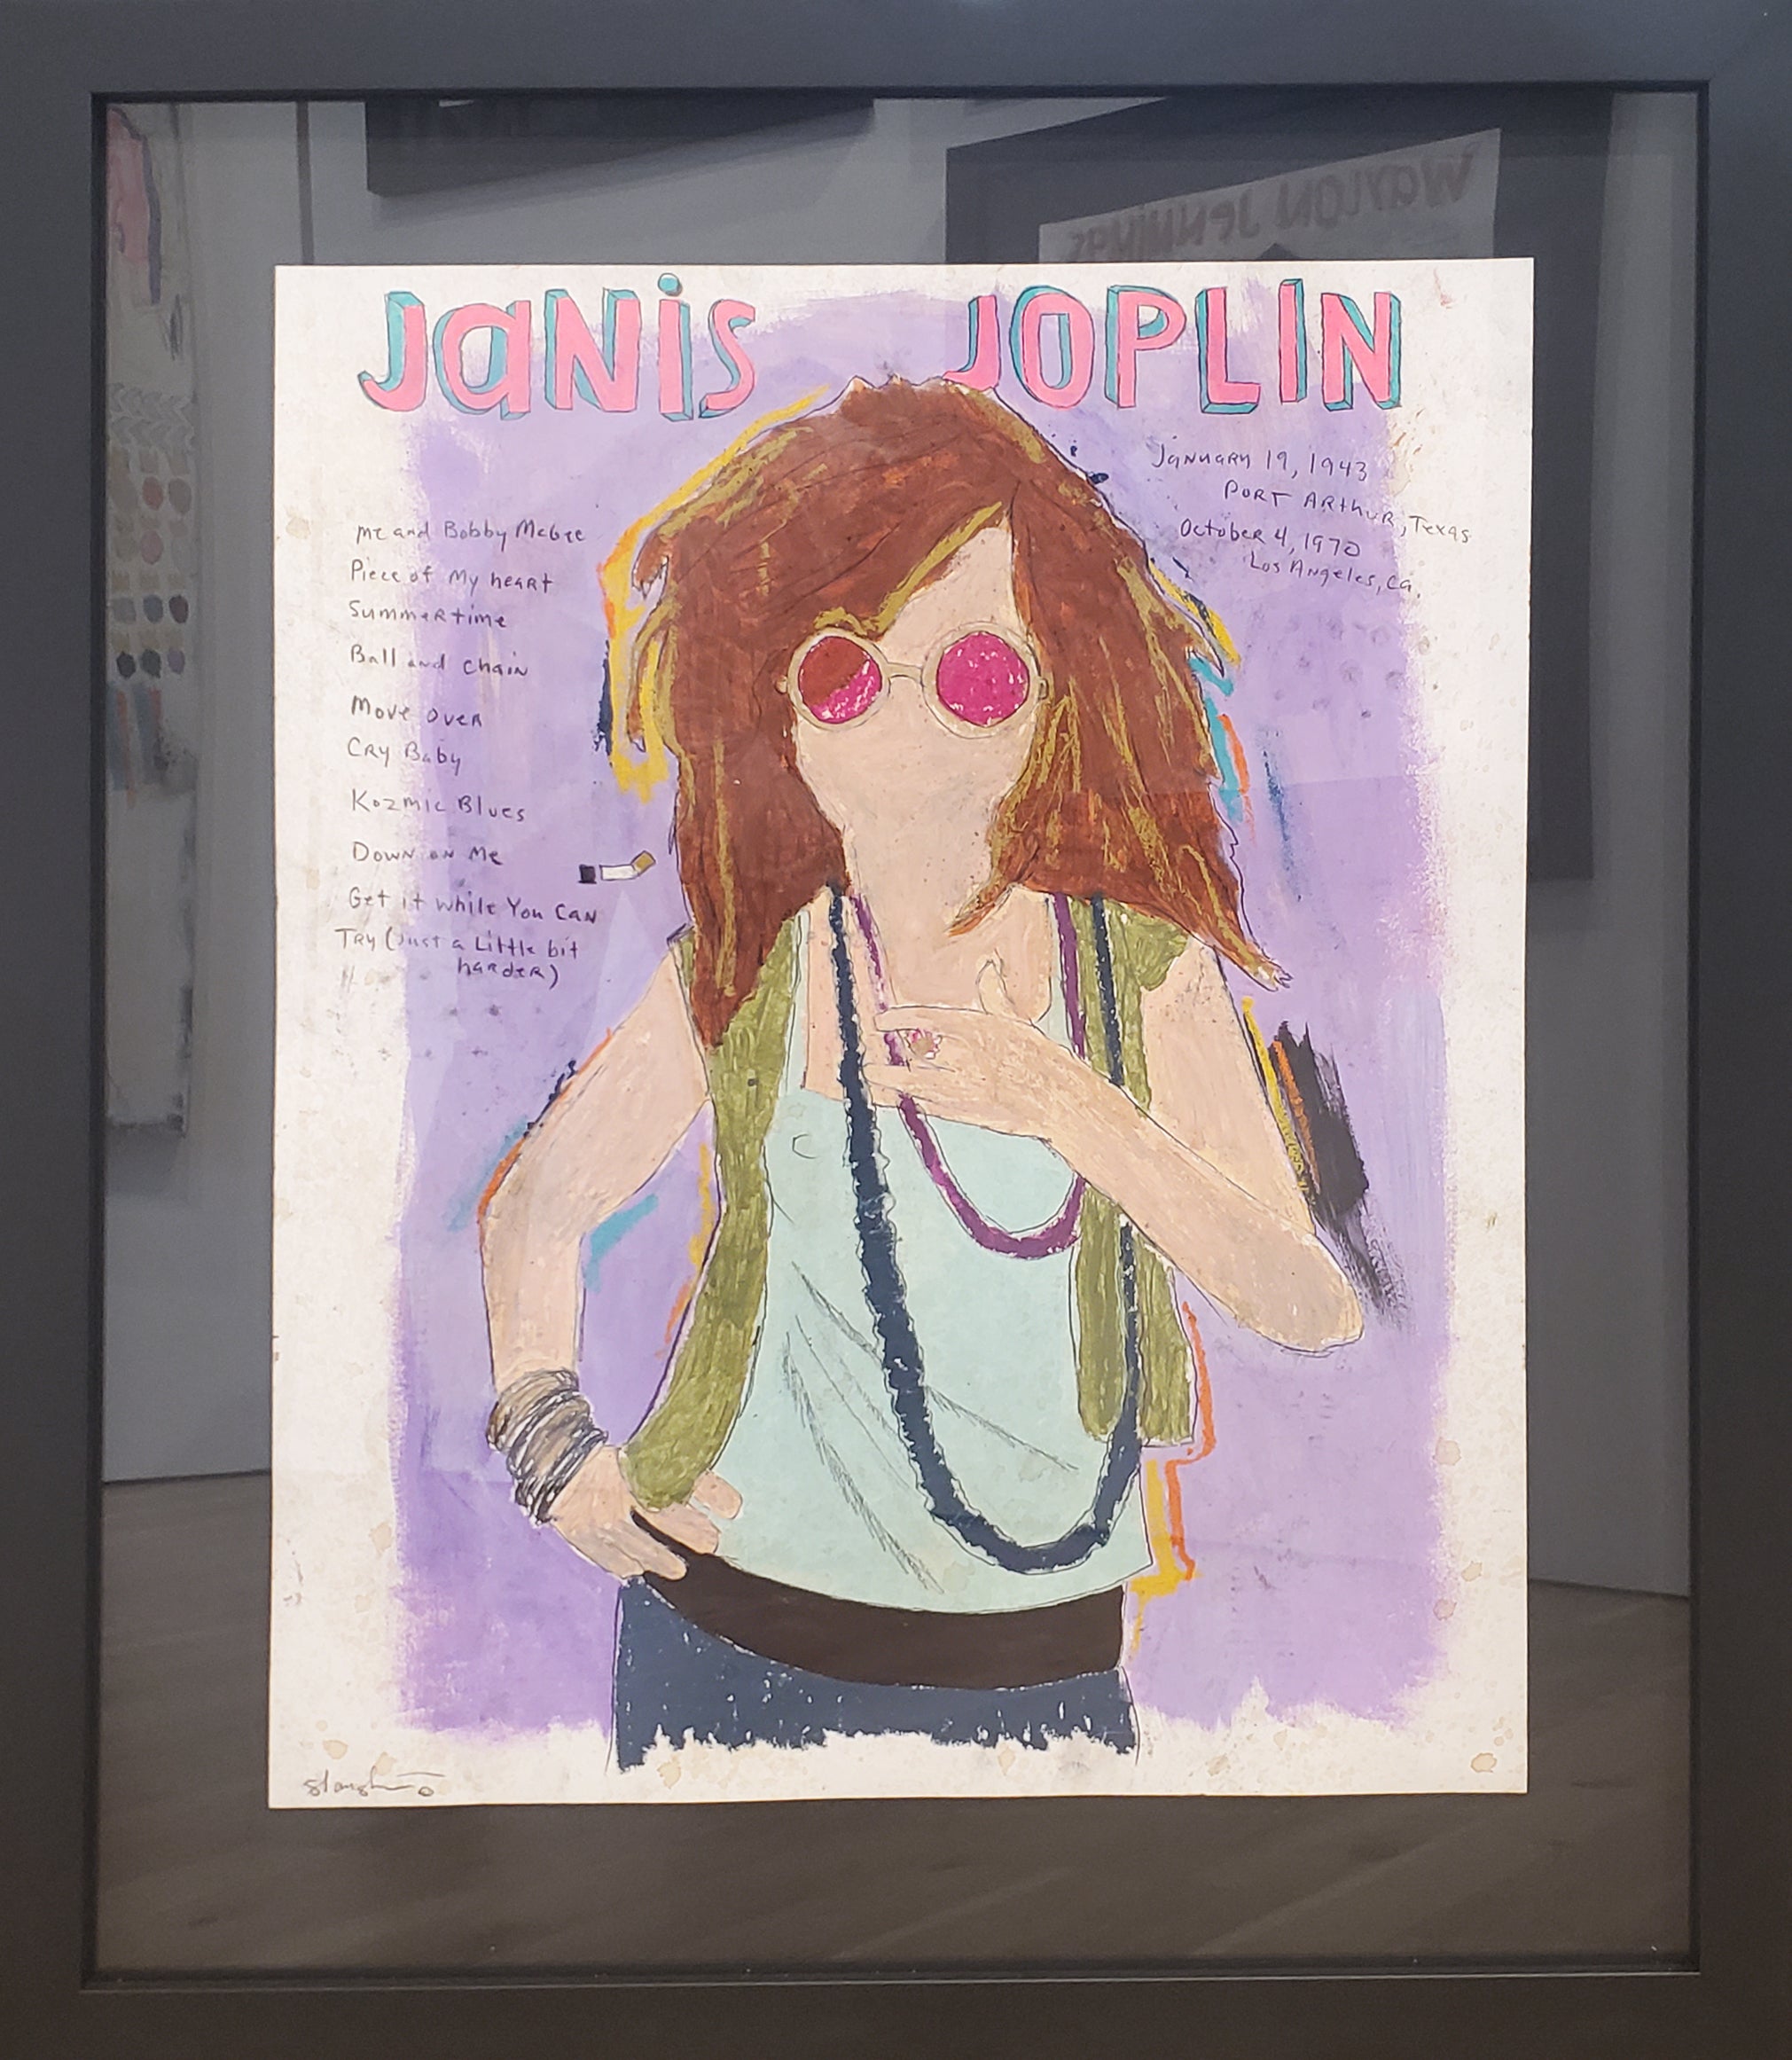 JaNiS JOPLIN
January 19, 1943
Port Arthur, Texas
October 4, 1970
Los Angeles, Ca.
me and Bobby McGee
Piece of My heart
Summertime
Ball and Chain
Move over
Cry Baby
Kozmic Blues
Down on Me
Get it while You Can
Try (Just a Little bit
harder)
WAYLON JENNINGS